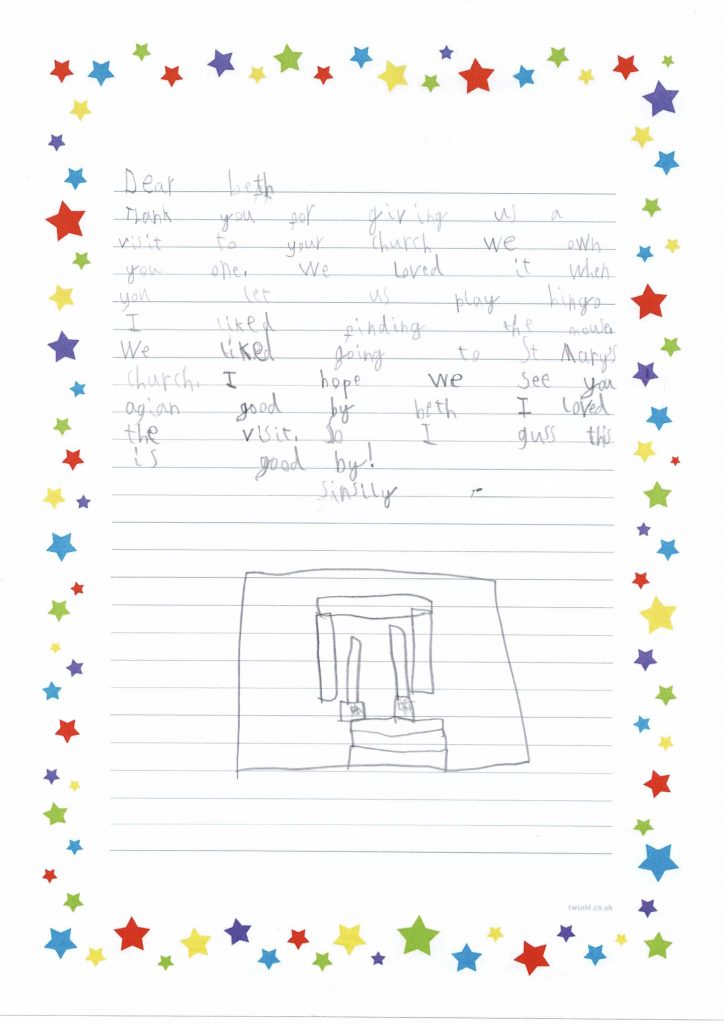 Dear beth
Thank you for giving us a
visit to your church we own
you one. We loved it when
you let us play bingo
I liked finding the mouse
We liked going to St Mary's
church. I hope we see you
agian good by beth I loved
the visit. So I guss this
is good by!
sinslly
twinkl.co.uk